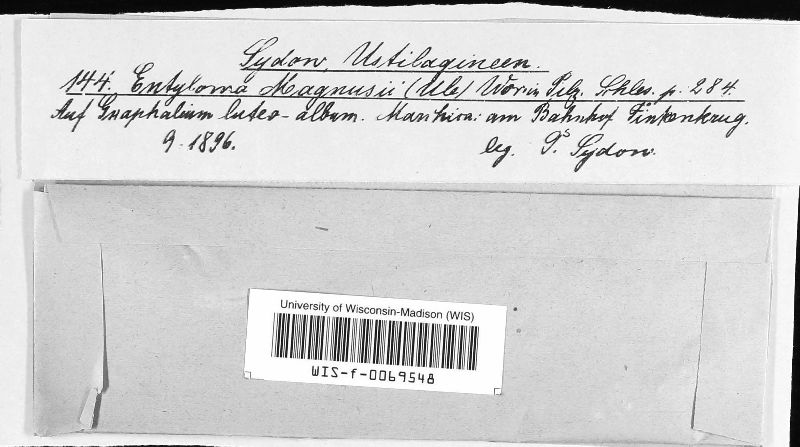 Sydow, Ustilagineen.
144. Entyloma Magnusii (Ule) Wor. in Pilz. Schles. p. 284.
Auf Gnaphalium luteo-album. Marchica: am Bahnhof Finkenkrug.
9. 1896. leg. P. Sydow.
University of Wisconsin-Madison (WIS)
WIS-f-0069548